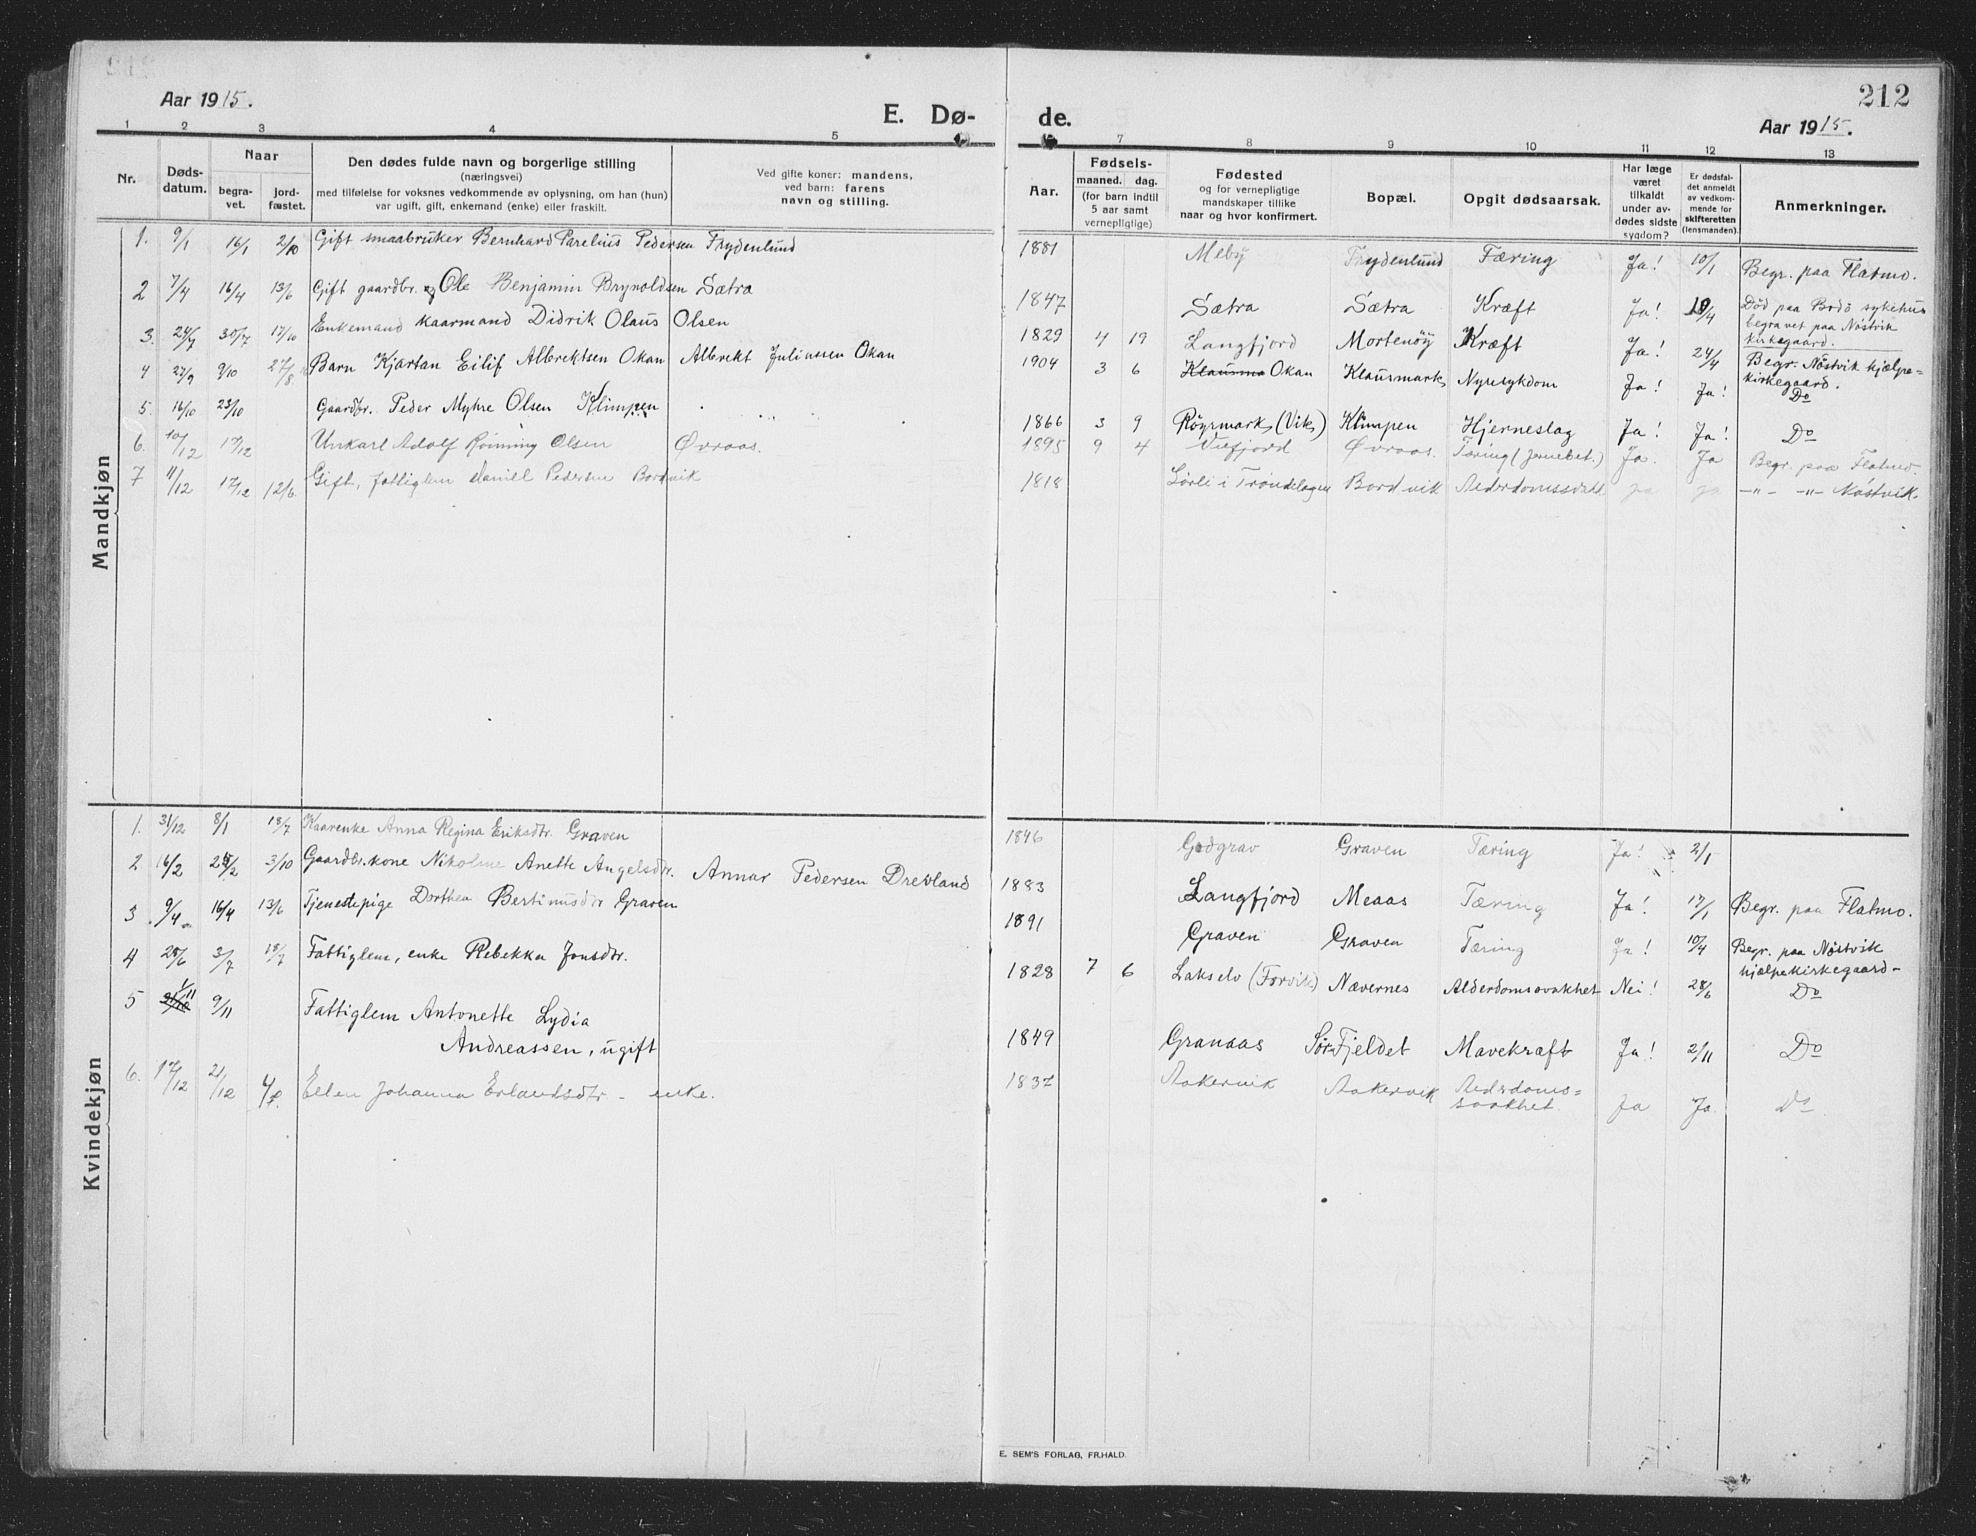 212
Aar 1915.
E. Dø-
de.
Aar 1915.
1 2 3 4 5 7 8 9 10 11 12 13
Nr.
Døds-
datum.
Naar
begra-
vet.
jord-
fæstet.
Den dødes fulde navn og borgerlige stilling
(næringsvei)
med tilføielse for voksnes vedkommende av oplysning, om han (hun)
var ugift, gift, enkemand (enke) eller fraskilt.
Ved gifte koner: mandens,
ved barn: farens
navn og stilling.
Aar.
Fødsels-
maaned. dag.
(for barn indtil
5 aar samt
vernepligtige)
Fødested
og for vernepligtige
mandskaper tillike
naar og hvor konfirmert.
Bopæl.
Opgit dødsaarsak.
Har læge
været
tilkaldt
under av-
dødes sidste
sygdom?
Er dødsfal-
det anmeldt
av vedkom-
mende for
skifteretten
(lensmanden).
Anmerkninger.
Mandkjøn
1. 9/1 16/1 2/10 Gift smaabruker Bernhard Parelius Pedersen Frydenlund 1881 Meby Frydenlund Tæring Ja! 10/1 Begr. paa Flatmo.
2 7/4 16/4 13/6 Gift gaardbr. Ole Benjamin Brynoldsen Sætra 1847 Sætra Sætra Kræft Ja! 10/4 Død paa Bodø sykehus
begravet paa Nøstvik
kirkegaard.
3. 24/7 30/7 17/10 Enkemand kaarmand Didrik Olaus Olsen 1829 4 19 Langfjord Mortenøy Kræft Ja! 24/4 Begr. Nøstvik hjælpe-
kirkegaard.
4 27/9 9/10 27/8 Barn Kjartan Eilif Albrektsen Okan Albrekt Juliussen Okan 1904 3 6 Okan Klausmark Nyresykdom Ja! Ja! Do
5. 16/10 23/10 Gaardbr. Peder Myhre Olsen Klimpen 1866 3 9 Röyrmark (Vik) Klimpen Hjerneslag Ja! Ja! Do
6. 10/12 17/12 Unkarl Adolf Rönning Olsen Övraas. 1895 9 4 Visfjord Övraas. Tæring (Ja. Ja Begr. paa Flatmo
7 11/12 17/12 12/6 Gift, fattiglem Daniel Pedersen Bordvik 1818 Lørli i Trøndelagen Bordvik Alderdomssvakh. ja ja -"- -"- Nøstvik.
Kvindekjøn
1. 31/12 8/1 18/7 Kaarenke Anna Regina Eriksdtr. Graven 1846 Godgrav Graven Tæring Ja! 2/1
2 16/2 25/2 3/10 Gaardbr.kone Nikoline Anette Angelsdtr. Annar Pedersen Drevland 1883 Langfjord Meaas Tæring Ja! 17/1 Begr. paa Flatmo.
3 9/4 16/4 13/6 Tjenestepige Dorthea Bertinusdtr Graven 1891 Graven Graven Tæring Ja! 10/4 Begr. paa Nøstvik
hjælpekirkegaard-
4 28/6 3/7 18/7 Fattiglem, enke Rebekka Jonsdtr. 1828 7 6 Lakselv (Forvik) Nævernes Alderdomssvakhet Nei! 28/6 Do
5 1/11 9/11 Fattiglem Antonette Lydia
Andreassen, ugift 1849 Granaas Sör-Fjeldet Mavekræft Ja! 2/11 Do
6. 17/12 21/12 Ellen Johanna Erlandsdtr - enke. 1837 Aakervik Aakervik Alderdoms=
svakhet. ja Ja. Do
E. SEM'S FORLAG, FR.HALD.